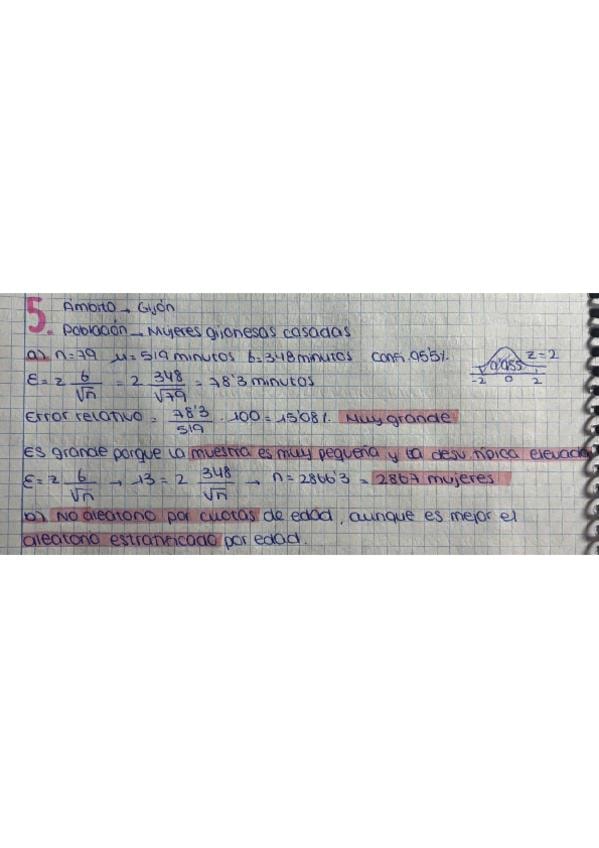 5. Ámbito → Gijón
Población → Mujeres gijonesas casadas
a) n=79 μ=519 minutos σ=348 minutos Confi. 95'5%
0'955 z=2
-2 0 2
ε = z σ/√n = 2 348/√79 = 78'3 minutos
Error relativo = 78'3/519 · 100 = 15'08%. Muy grande
Es grande porque la muestra es muy pequeña y la desv. típica elevada
ε = z σ/√n → 13 = 2 348/√n → n = 2866'3 = 2867 mujeres
b) No aleatorio por cuotas de edad, aunque es mejor el
aleatorio estratificado por edad.